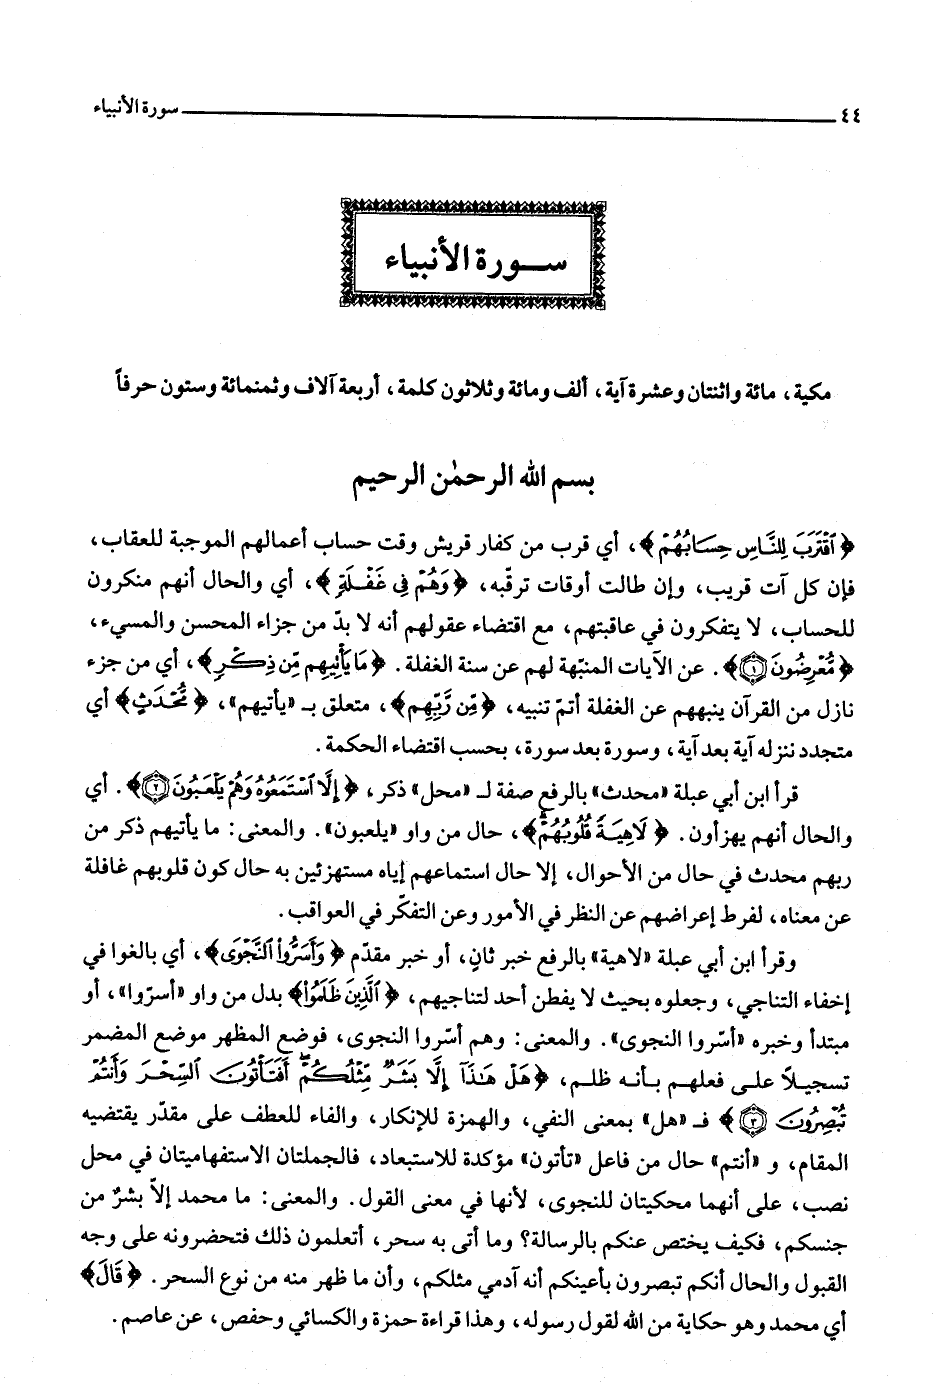 ٤٤ سورة الأنبياء
سورة الأنبياء
مكية، مائة واثنتان وعشرة آية، ألف ومائة وثلاثون كلمة، أربعة آلاف وثمنمائة وستون حرفاً
بسم الله الرحمٰن الرحيم
﴿ٱقْتَرَبَ لِلنَّاسِ حِسَابُهُمْ﴾، أي قرب من كفار قريش وقت حساب أعمالهم الموجبة للعقاب،
فإن كل آت قريب، وإن طالت أوقات ترقّبه، ﴿وَهُمْ فِي غَفْلَةٍ﴾، أي والحال أنهم منكرون
للحساب، لا يتفكرون في عاقبتهم، مع اقتضاء عقولهم أنه لا بدّ من جزاء المحسن والمسيء،
﴿مُّعْرِضُونَ ١﴾. عن الآيات المنبّهة لهم عن سنة الغفلة. ﴿مَا يَأْتِيهِم مِّن ذِكْرٍ﴾، أي من جزء
نازل من القرآن ينبههم عن الغفلة أتمّ تنبيه، ﴿مِّن رَّبِّهِم﴾، متعلق بـ «يأتيهم»، ﴿مُّحْدَثٍ﴾ أي
متجدد تنزله آية بعد آية، وسورة بعد سورة، بحسب اقتضاء الحكمة.
قرأ ابن أبي عبلة «محدث» بالرفع صفة لـ «محل» ذكر، ﴿إِلَّا ٱسْتَمَعُوهُ وَهُمْ يَلْعَبُونَ ٢﴾. أي
والحال أنهم يهزأون. ﴿لَاهِيَةً قُلُوبُهُمْ﴾، حال من واو «يلعبون». والمعنى: ما يأتيهم ذكر من
ربهم محدث في حال من الأحوال، إلا حال استماعهم إياه مستهزئين به حال كون قلوبهم غافلة
عن معناه، لفرط إعراضهم عن النظر في الأمور وعن التفكّر في العواقب.
وقرأ ابن أبي عبلة «لاهية» بالرفع خبر ثانٍ، أو خبر مقدّم ﴿وَأَسَرُّوا۟ ٱلنَّجْوَى﴾، أي بالغوا في
إخفاء التناجي، وجعلوه بحيث لا يفطن أحد لتناجيهم، ﴿ٱلَّذِينَ ظَلَمُوا۟﴾ بدل من واو «أسرّوا»، أو
مبتدأ وخبره «أسّروا النجوى». والمعنى: وهم أسّروا النجوى، فوضع المظهر موضع المضمر
تسجيلاً على فعلهم بأنه ظلم، ﴿هَلْ هَـٰذَآ إِلَّا بَشَرٌ مِّثْلُكُمْ أَفَتَأْتُونَ ٱلسِّحْرَ وَأَنتُمْ
تُبْصِرُونَ ٣﴾ فـ «هل» بمعنى النفي، والهمزة للإنكار، والفاء للعطف على مقدّر يقتضيه
المقام، و «أنتم» حال من فاعل «تأتون» مؤكدة للاستبعاد، فالجملتان الاستفهاميتان في محل
نصب، على أنهما محكيتان للنجوى، لأنها في معنى القول. والمعنى: ما محمد إلاّ بشرٌ من
جنسكم، فكيف يختص عنكم بالرسالة؟ وما أتى به سحر، أتعلمون ذلك فتحضرونه على وجه
القبول والحال أنكم تبصرون بأعينكم أنه آدمي مثلكم، وأن ما ظهر منه من نوع السحر. ﴿قَالَ﴾
أي محمد وهو حكاية من الله لقول رسوله، وهذا قراءة حمزة والكسائي وحفص، عن عاصم.